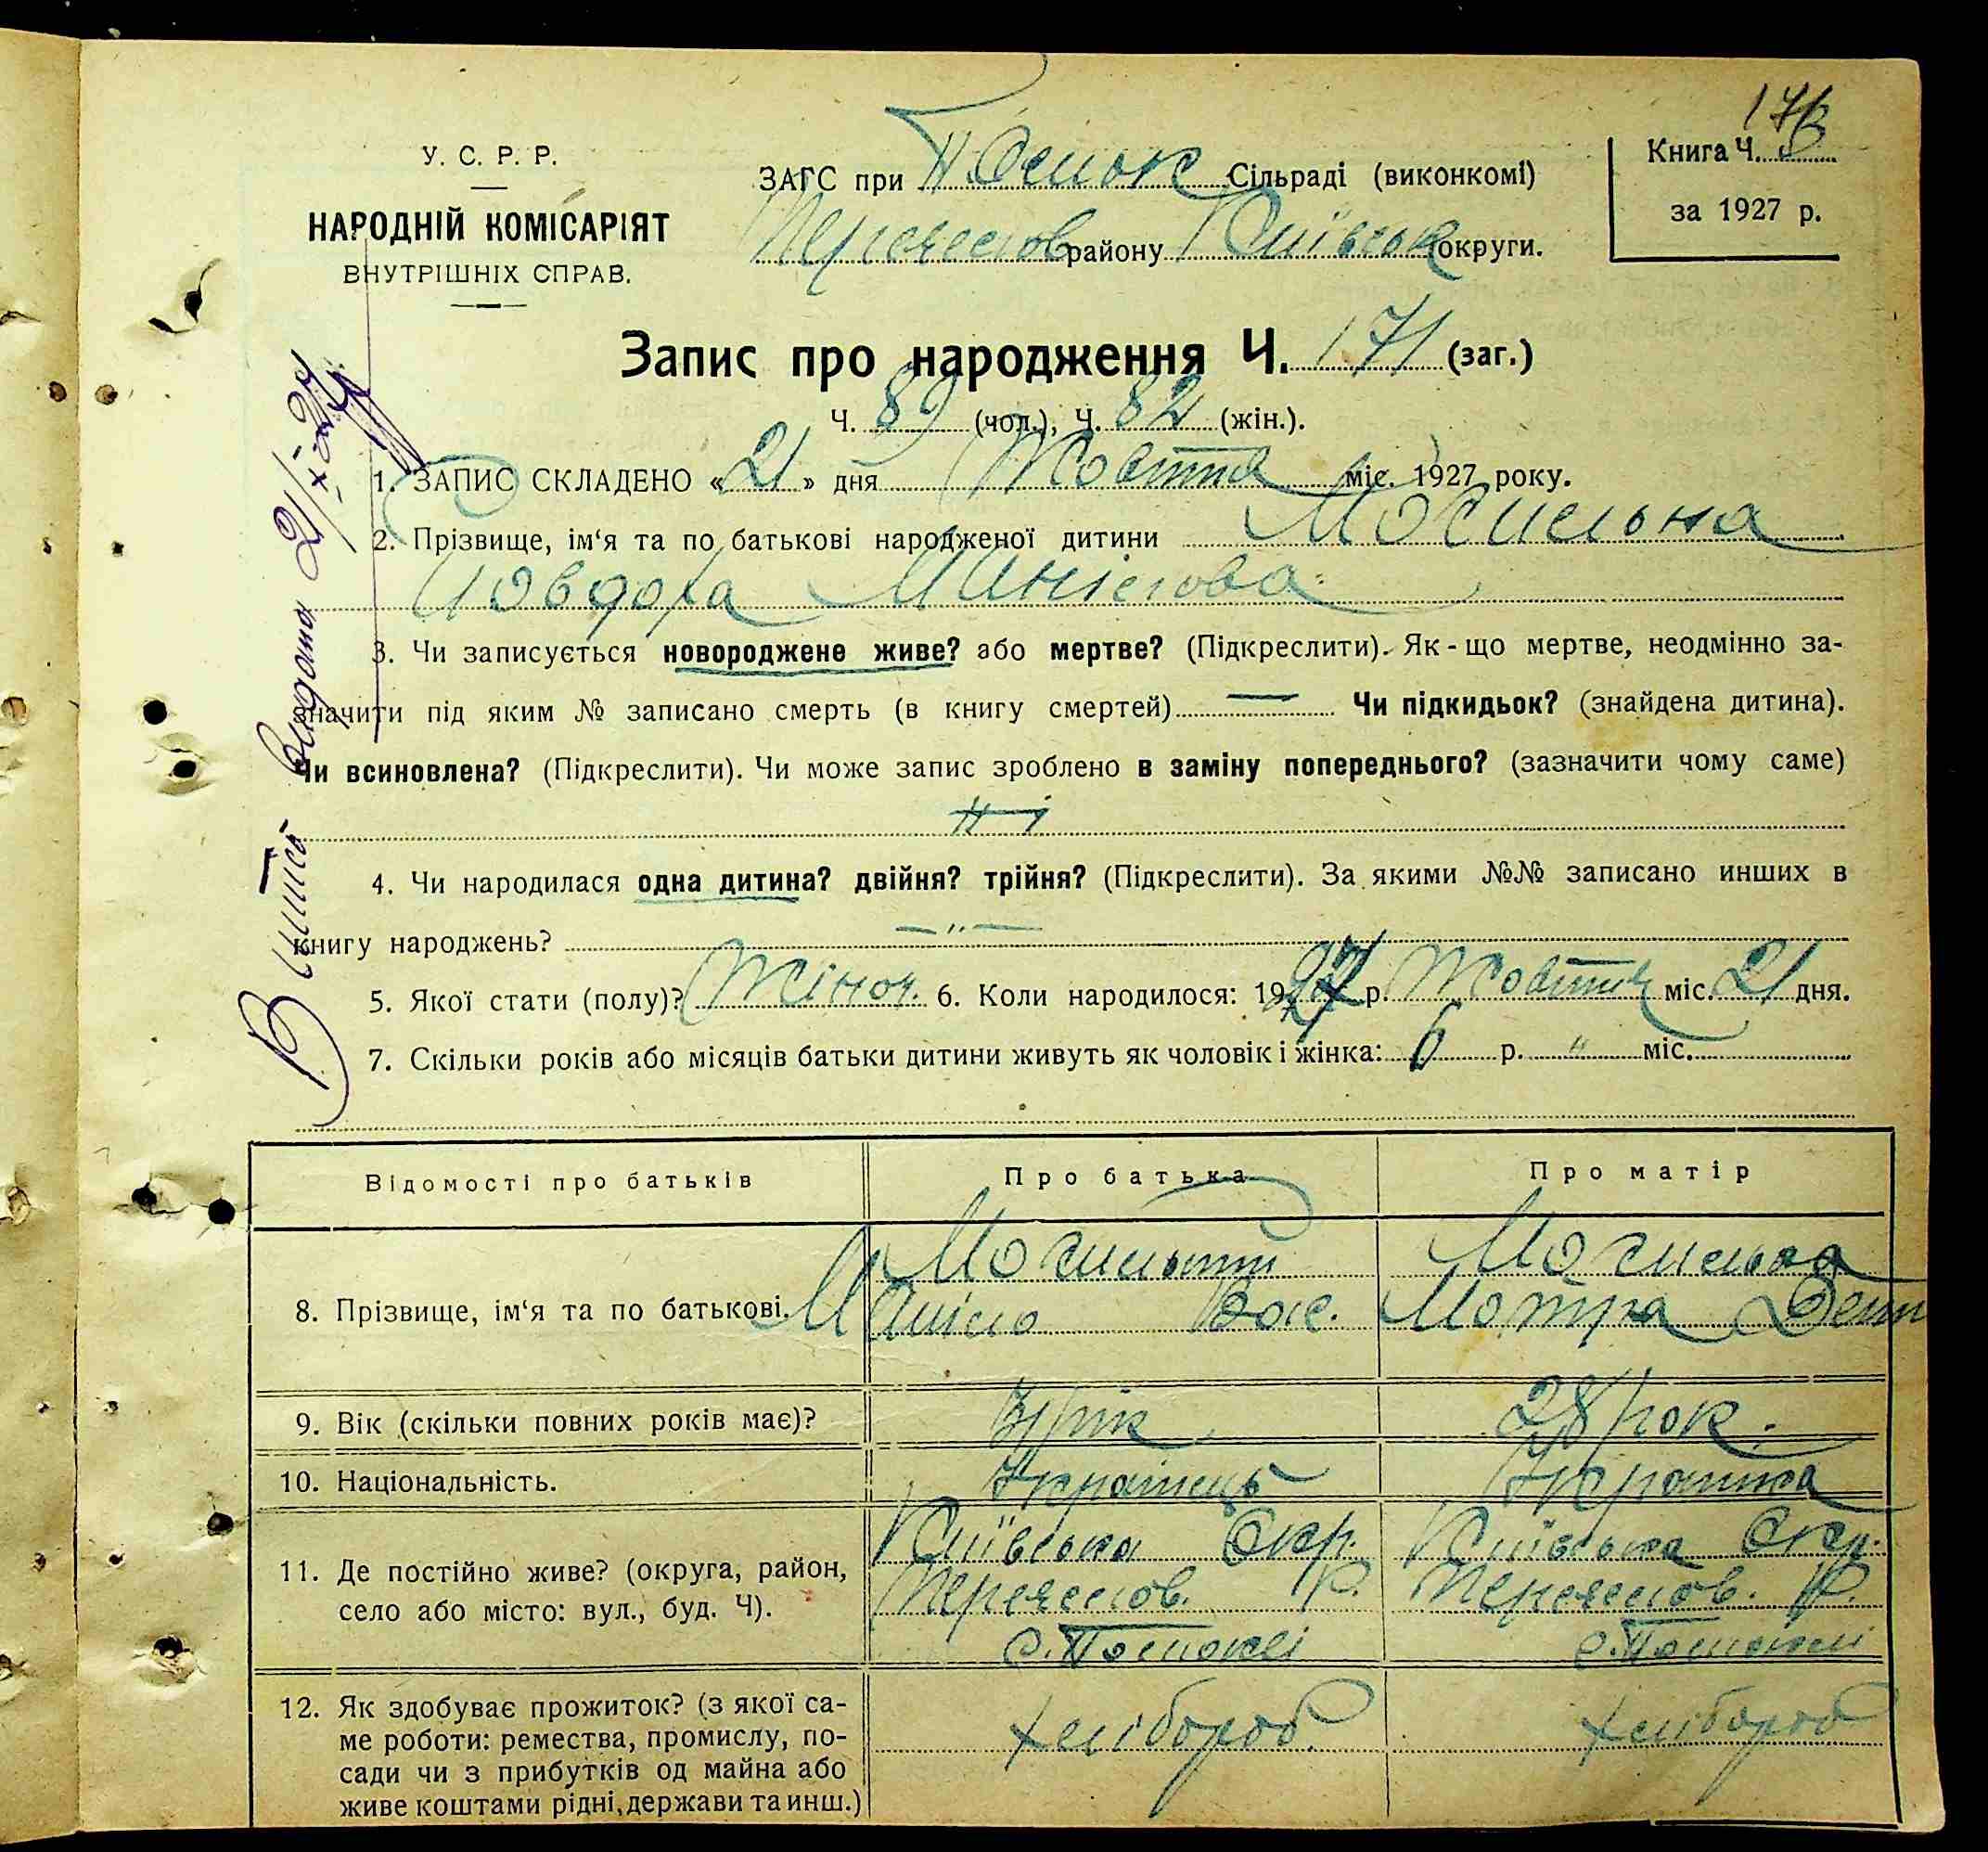 176
У. С. Р. Р.
НАРОДНІЙ КОМІСАРІЯТ
ВНУТРІШНІХ СПРАВ.
ЗАГС при Помок Сільраді (виконкомі)
Переяслов району Київськ округи.
Книга Ч. 3
за 1927 р.
Запис про народження Ч. 171 (заг.)
Ч. 89 (чол.), Ч. 82 (жін.).
1. ЗАПИС СКЛАДЕНО «21» дня Жовтня міс. 1927 року.
2. Прізвище, ім'я та по батькові народженої дитини Могильна
Явдоха Манілова
3. Чи записується новороджене живе? або мертве? (Підкреслити). Як-що мертве, неодмінно за-
значити під яким № записано смерть (в книгу смертей) — Чи підкидьок? (знайдена дитина).
Чи всиновлена? (Підкреслити). Чи може запис зроблено в заміну попереднього? (зазначити чому саме)
Ні
4. Чи народилася одна дитина? двійня? трійня? (Підкреслити). За якими №№ записано инших в
книгу народжень? — " —
5. Якої стати (полу)? Жіноч. 6. Коли народилося: 1927 р. Жовтня міс. 21 дня.
7. Скільки років або місяців батьки дитини живуть як чоловік і жінка: 6 р. " міс.
Витяг видано 21/X-27
Відомості про батьків
Про батька
Про матір
8. Прізвище, ім'я та по батькові.
Могильний
Маніло Вас.
Могильна
Мотря Дем
9. Вік (скільки повних років має)?
31 рік
28 рок.
10. Національність.
Українець
Українка
11. Де постійно живе? (округа, район,
село або місто: вул., буд. Ч).
Київська Окр.
Переяслов. Р.
с. Помоклі
Київська Окр.
Переяслов. Р.
с. Помоклі
12. Як здобуває прожиток? (з якої са-
ме роботи: ремества, промислу, по-
сади чи з прибутків од майна або
живе коштами рідні, держави та инш.)
хлібороб
хлібороб